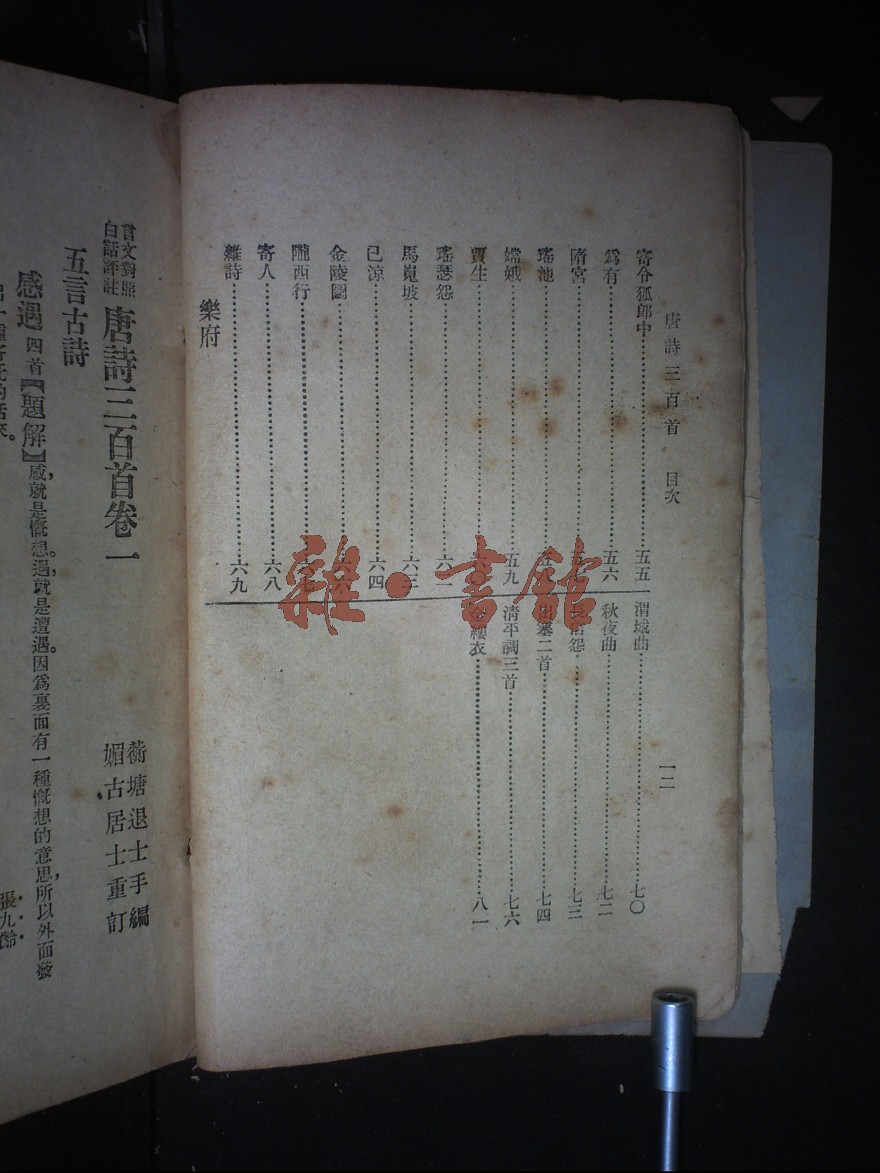 唐詩三百首 目次
一二
寄令狐郎中 五五
爲有 五六
隋宮
瑤池
嫦娥 五九
賈生
瑤瑟怨 六一
馬嵬坡 六三
已涼 六四
金陵圖
隴西行
寄人 六八
雜詩 六九
樂府
渭城曲 七〇
秋夜曲 七二
長信怨 七三
塞二首 七四
清平調三首 七六
縷衣 八一
雜·書館
言文對照
白話評註
唐詩三百首卷一
蘅塘退士手編
媚古居士重訂
五言古詩
感遇 四首【題解】感,就是慨想。遇,就是遭遇。因爲裏面有一種慨想的意思,所以外面發
張九齡